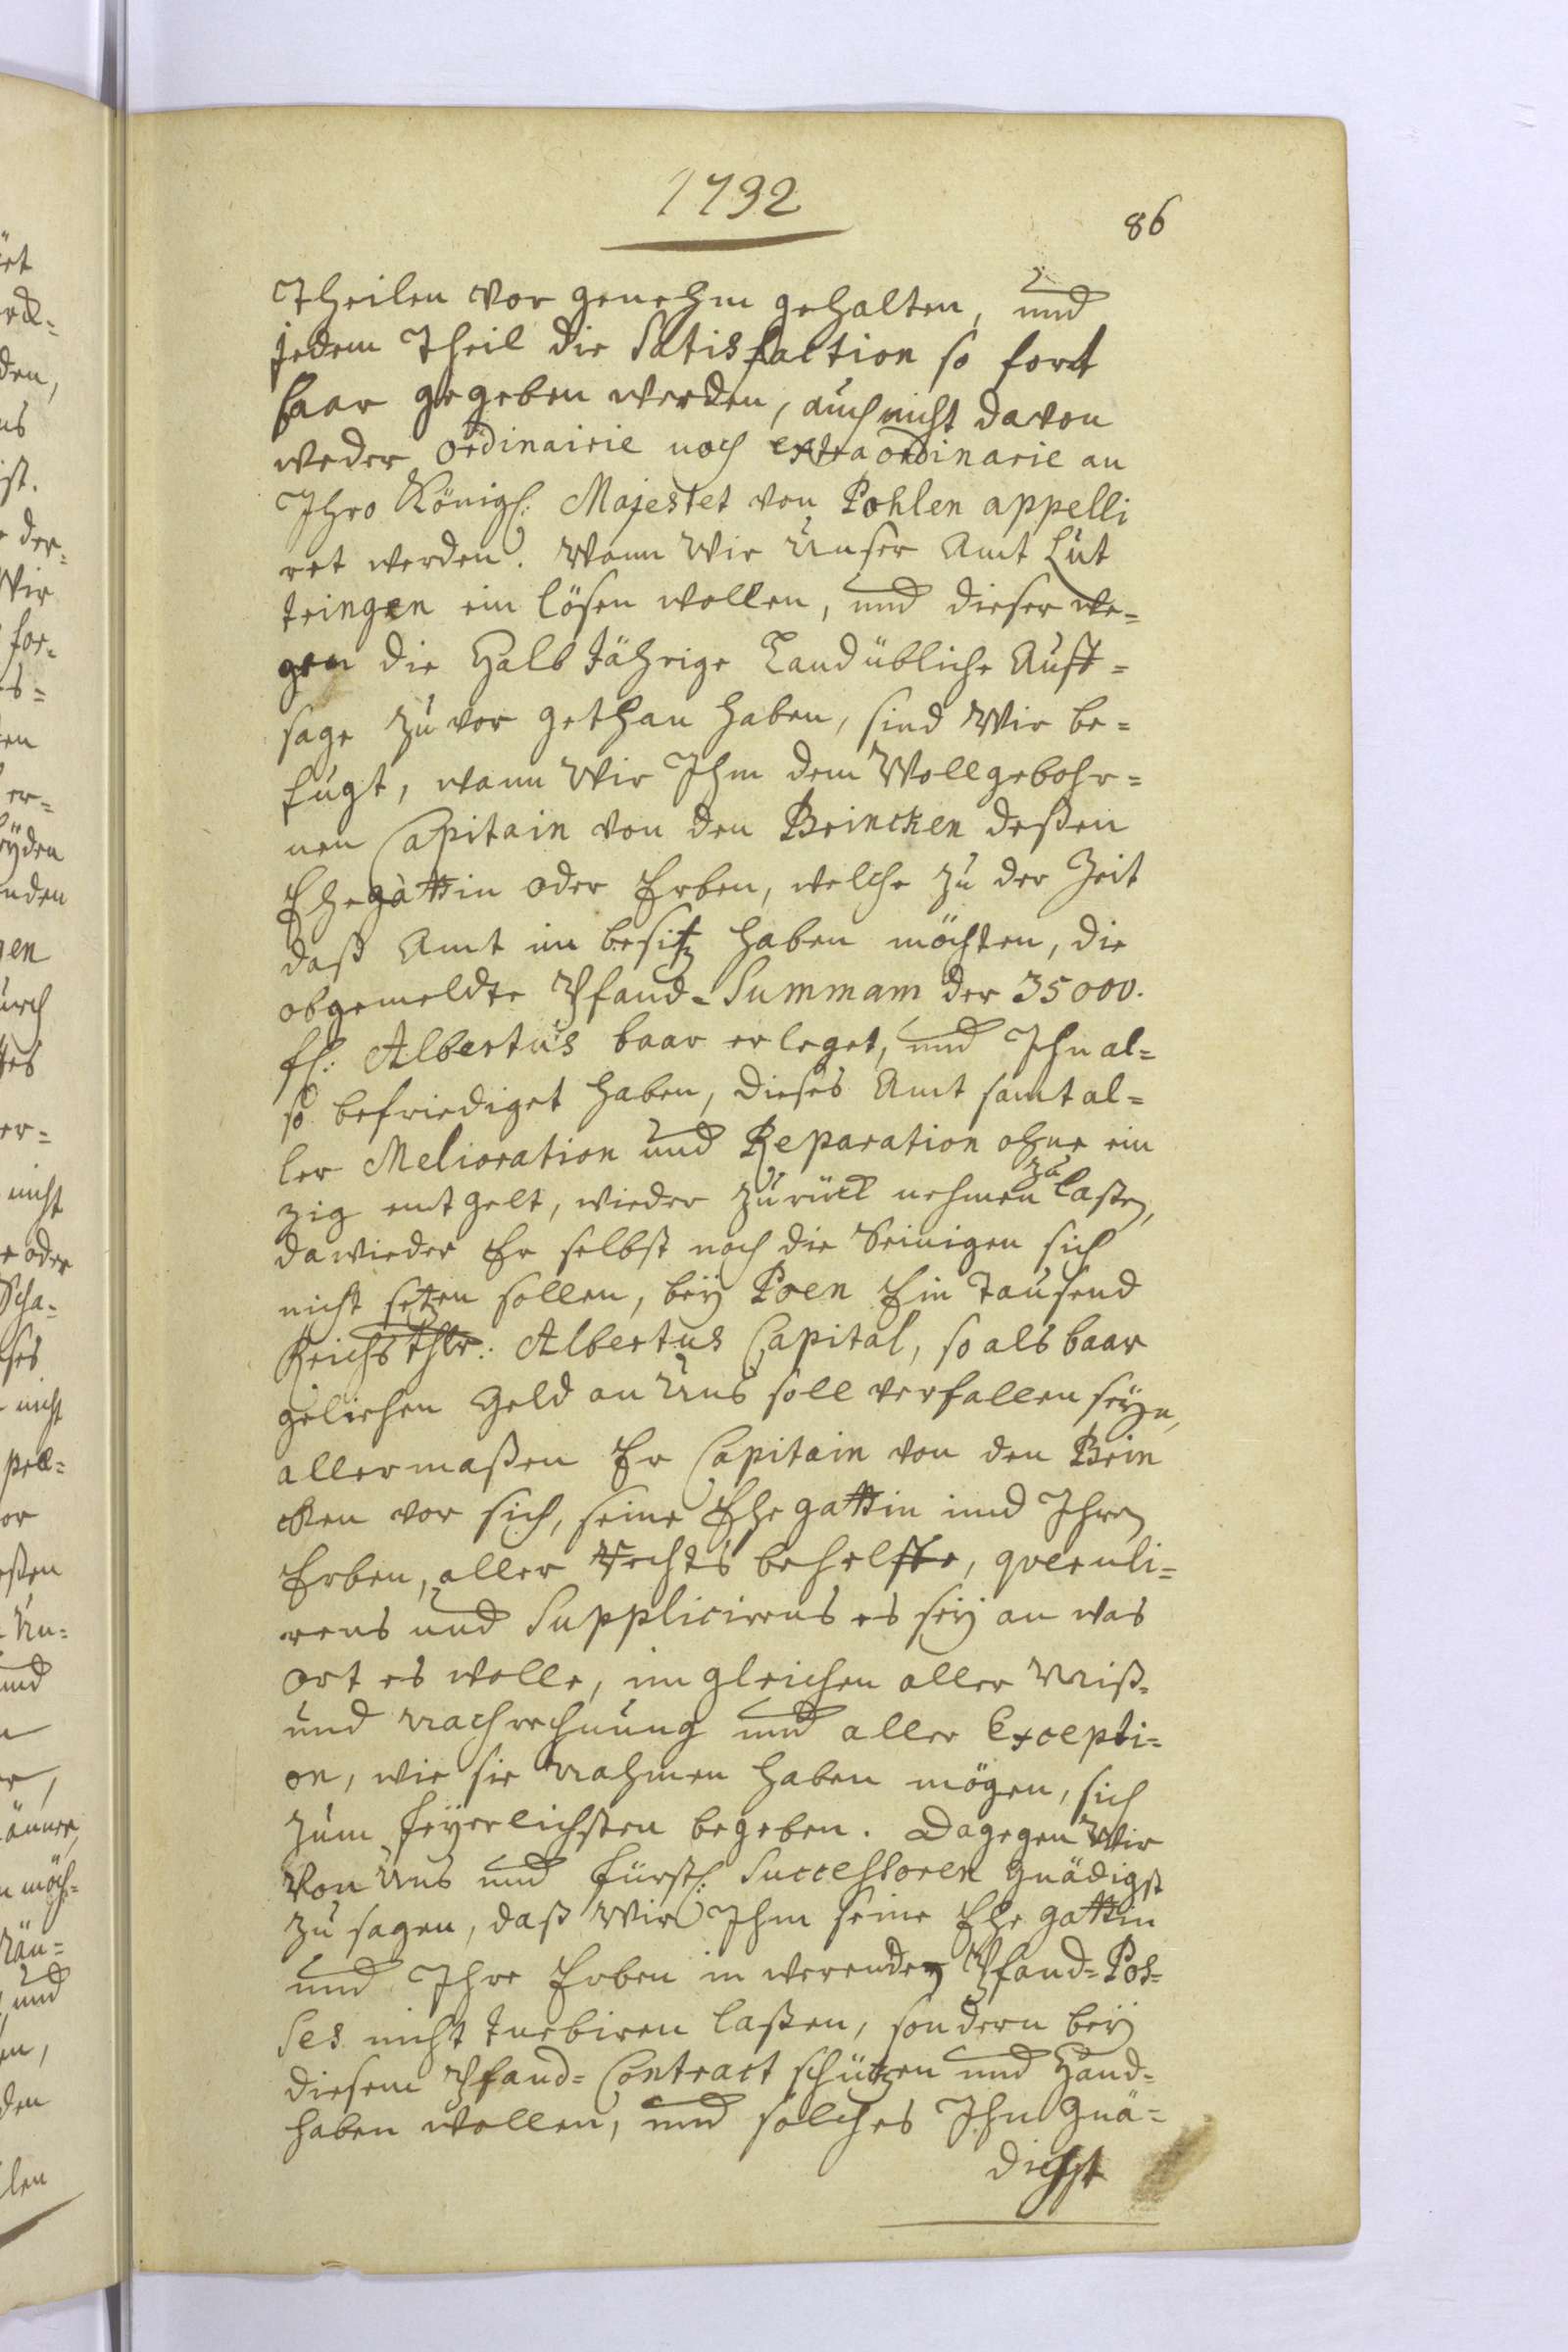 1732
86
Theilen vor genehm gehalten, und
jedem Theil die Satisfaction so fort
baar gegeben werden, auch nicht davon
weder ordinairie noch extraordinarie an
Ihro Königl: Majestet von Pohlen appelli
ret werden. Wann Wir Unser Amt Lut
tringen ein lösen wollen, und dieser we=
gen die Halb Jährige Landübliche Auff=
sage zu vor gethan haben, sind Wir be=
fugt, wann Wir Ihm dem Wollgebohr=
nen Capitain von den Brincken deßen
Ehegattin oder Erben, welche zu der Zeit
daß Amt im besitz haben möchten, die
obgemeldte Pfand-Summam der 35000.
fl: Albertus baar erleget, und Ihn al=
so befriediget haben, dieses Amt samt al=
ler Melioration und Reparation ohne ein
zig entgelt, wieder zurück nehmen zu laßen,
dawieder Er selbst noch die Seinigen sich
nicht setzen sollen, bey Poen Ein Tausend
Reichsthlr: Albertus Capital, so als baar
geliehen Geld an Uns soll verfallen seyn,
allermaßen Er Capitain von den Brin
cken vor sich, seine Ehegattin und Ihre
Erben, aller Rechts behelffe, queruli=
rens und Supplicirens es sey an was
ort es wolle, im gleichen aller Miß=
und Nachrechnung und aller Excepti=
on, wie sie Nahmen haben mögen, sich
zum feyerlichsten begeben. Dagegen Wir
Von Uns und Fürstl: Successoren Gnädigst
zu sagen, daß Wir Ihm seine Ehe gattin
und Ihre Erben in werenden Pfand=Pos=
ses nicht turbiren laßen, sondern bey
diesem Pfand=Contract schützen und Hand=
haben wollen, und solches Ihn Gnä=
digst